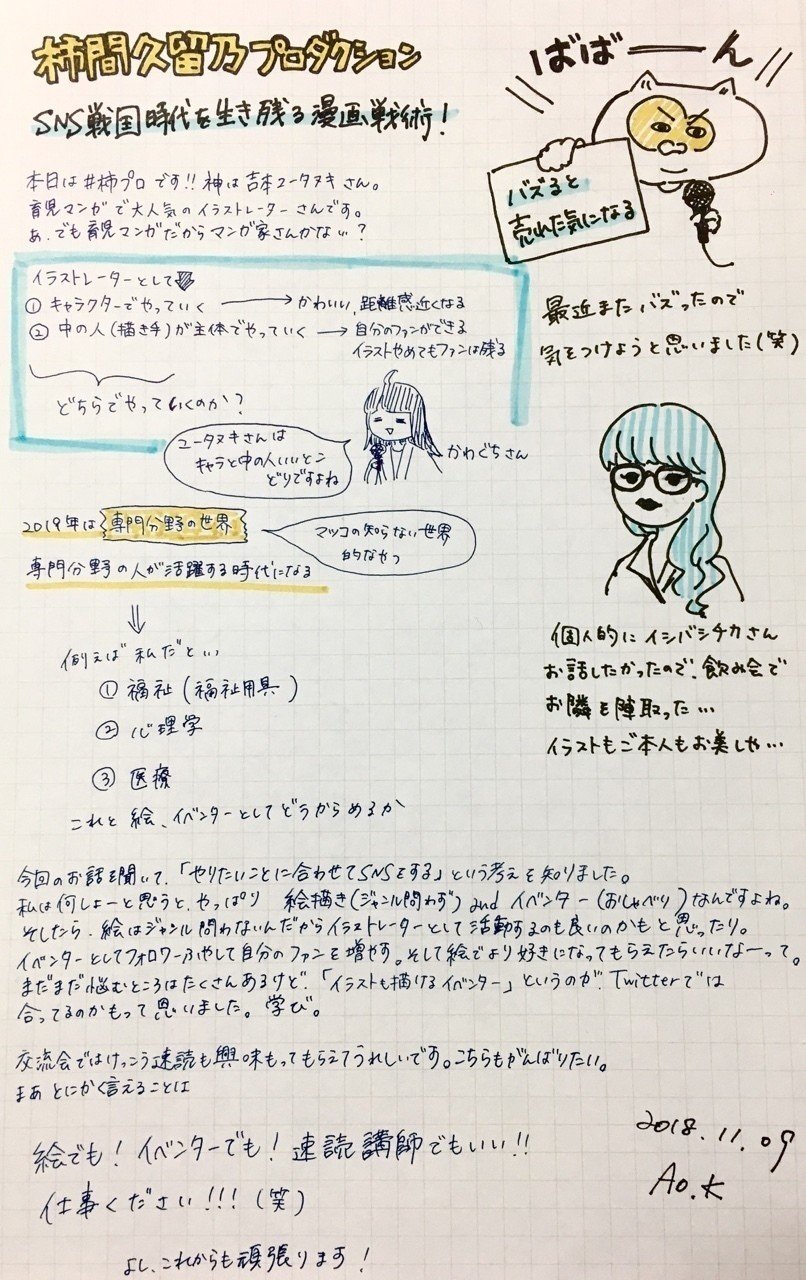 柿間久留乃プロダクション
SNS戦国時代を生き残る漫画戦術!
ばばーーん
バズると
売れた気になる
本日は#柿プロです!!神は吉本ユータヌキさん。
育児マンガで大人気のイラストレーターさんです。
あ、でも育児マンガだからマンガ家さんかなぃ?
イラストレーターとして
① キャラクターでやっていく → かわいい、距離感近くなる
② 中の人(描き手)が主体でやっていく → 自分のファンができる
イラストやめてもファンは残る
どちらでやっていくのか?
ユータヌキさんは
キャラと中の人いいとこ
どりですよね
かわぐちさん
最近またバズったので
気をつけようと思いました(笑)
2019年は専門分野の世界
マツコの知らない世界
的なやつ
専門分野の人が活躍する時代になる
⇓
例えば私だとぃぃ
① 福祉(福祉用具)
② 心理学
③ 医療
これと絵、イベンターとしてどうからめるか
個人的にイシバシチカさん
お話したかったので、飲み会で
お隣を陣取った…
イラストもご本人もお美しや…
今回のお話を聞いて、「やりたいことに合わせてSNSをする」という考えを知りました。
私は何しよーと思うと、やっぱり 絵描き(ジャンル問わず) and イベンター(おしゃべり)なんですよね。
そしたら、絵はジャンル問わないんだからイラストレーターとして活動するのも良いのかもと思ったり。
イベンターとしてフォロワーふやして自分のファンを増やす。そして絵でより好きになってもらえたらいいなーって。
まだまだ悩むところはたくさんあるけど、「イラストも描けるイベンター」というのが、Twitterでは
合ってるのかもって思いました。学び。
交流会ではけっこう速読も興味もってもらえてうれしいです。こちらもがんばりたい。
まあとにかく言えることは
絵でも!イベンターでも!速読講師でもいい!!
仕事ください!!!(笑)
よし、これからも頑張ります!
2018.11.09
Ao.K